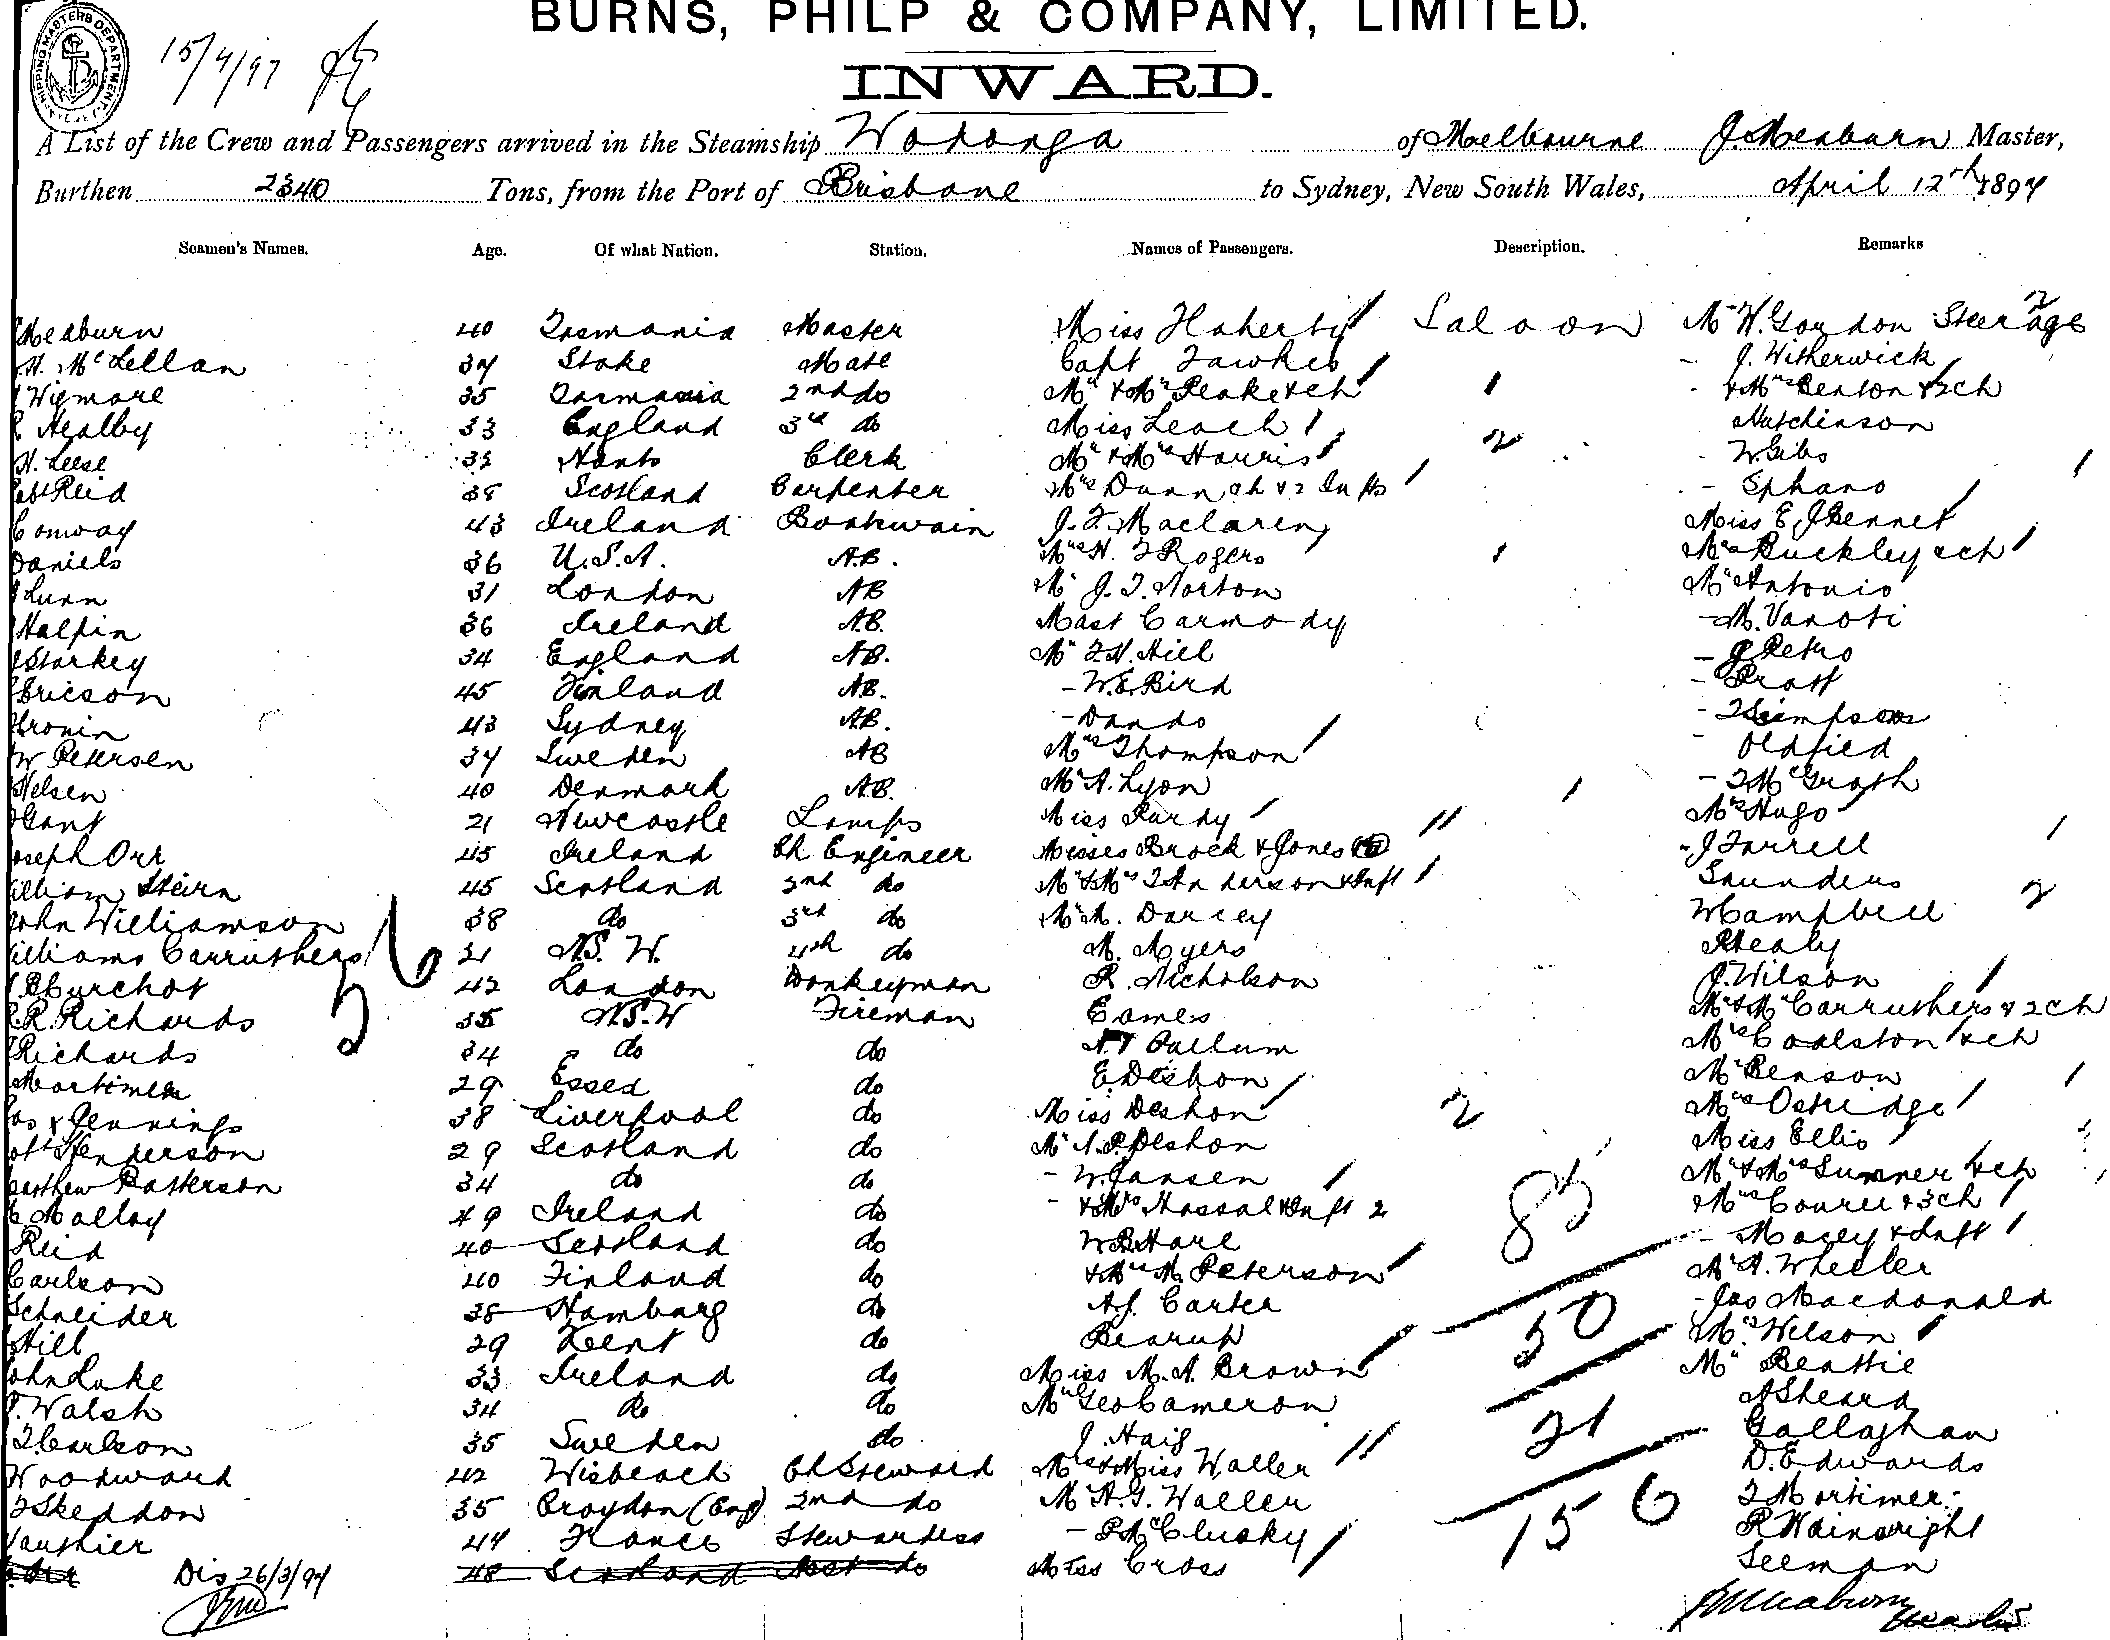 BURNS, PHILP & COMPANY, LIMITED.
INWARD.
SHIPPING MASTERS DEPARTMENT
15/4/97
A List of the Crew and Passengers arrived in the Steamship Wodonga of Melbourne J Meaburn Master,
Burthen 2340 Tons, from the Port of Brisbane to Sydney, New South Wales, April 12th 1897
Seamen's Names. Age. Of what Nation. Station. Names of Passengers. Description. Remarks
Meaburn 40 Tasmania Master Miss Flaherty Saloon Mr W. Gordon Steerage 2
H. McLellan 37 Stoke Mate Capt Fawkes - J. Witherwick
Wigmore 35 Tasmania 2nd do Mr & Mrs Peake & ch 1 - & Mrs Benton & 2 ch
Healby 33 England 3rd do Miss Leach 2 Hutchinson
H. Leese 32 Hants Clerk Mr & Mrs Harris - W Gibs
Robt Reid 38 Scotland Carpenter Mrs Dunn ch & 2 Infts - Ephano
Conway 43 Ireland Boatswain J. F. Maclaren Miss E J Bennet
Daniels 36 U.S.A. A.B. Mrs H. F Rogers 1 Mrs Buckley & ch
Lunn 31 London AB Mr J. T. Norton Mr Antonio
Halpin 36 Ireland A.B. Mast Carmody - M. Vanoti
Starkey 34 England AB. Mr F. H. Hill - J Petro
Ericson 45 Finland AB. - W. E. Bird - Pratt
Cronin 43 Sydney AB. - Dando - T Simpson
W Petersen 37 Sweden AB Mrs Thompson - Oldfied
Nelsen 40 Denmark A.B. Mr A. Lyon - T McGrath
Gant 21 Newcastle Lamps Miss Purdy Mrs Hugo
Joseph Orr 45 Ireland Ch Engineer Misses Brock & Jones - J Farrell
William Stein 45 Scotland 2nd do Mr & Mrs T Anderson & Inft Saunders
John Williamson 38 do 3rd do Mr M. Darcey W Campbell 2
Williams Carruthers 31 N.S.W. 4th do M. Myers Healy
Burchot 42 London Donkeyman R. Nicholson J. Wilson
R. Richards 35 N.S.W Fireman Eames Mr & Mrs Carruthers & 2 ch
Richards 34 do do Callum Mrs Coalston & ch
Mortimer 29 Essex do E. Deshon Mr Benson
Jas Jennings 38 Liverpool do Miss Deshon 2 Mrs Ostridge
Robt Henderson 29 Scotland do Mr A. P. Deshon Miss Ellis
Matthew Patterson 34 do do - W. Jansen Mr & Mrs Sumner & ch
Malloy 49 Ireland do - & Mrs Hassal & Inft 2 85 Mrs Courel & 3 ch
Reid 40 Scotland do W B Hare - Macey & Inft
Carlson 40 Finland do & Mrs M. Peterson Mr A. Wheeler
Schneider 38 Hamburg do A. J. Carter 50 - Jas Macdonald
Hill 29 Kent do Bearup Mrs Wilson
John Luke 33 Ireland do Miss M. A. Brown Mr Beattie
Walsh 34 do do Mr Geo Cameron A Sheard
Carlson 35 Sweden do J. Haig 21 Gallaghan
Woodward 42 Wisbeach Ch Steward Mrs & Miss Waller D. Edwards
Skeddon 35 Croydon (Eng) 2nd do Mr A. G. Waller 156 T Mortimer
Gauthier 44 France Stewardess - P. McClusky R Wainwright
Orr Dis 26/3/97 48 Scotland Asst do Miss Cross Seeman
J Meaburn Master
56